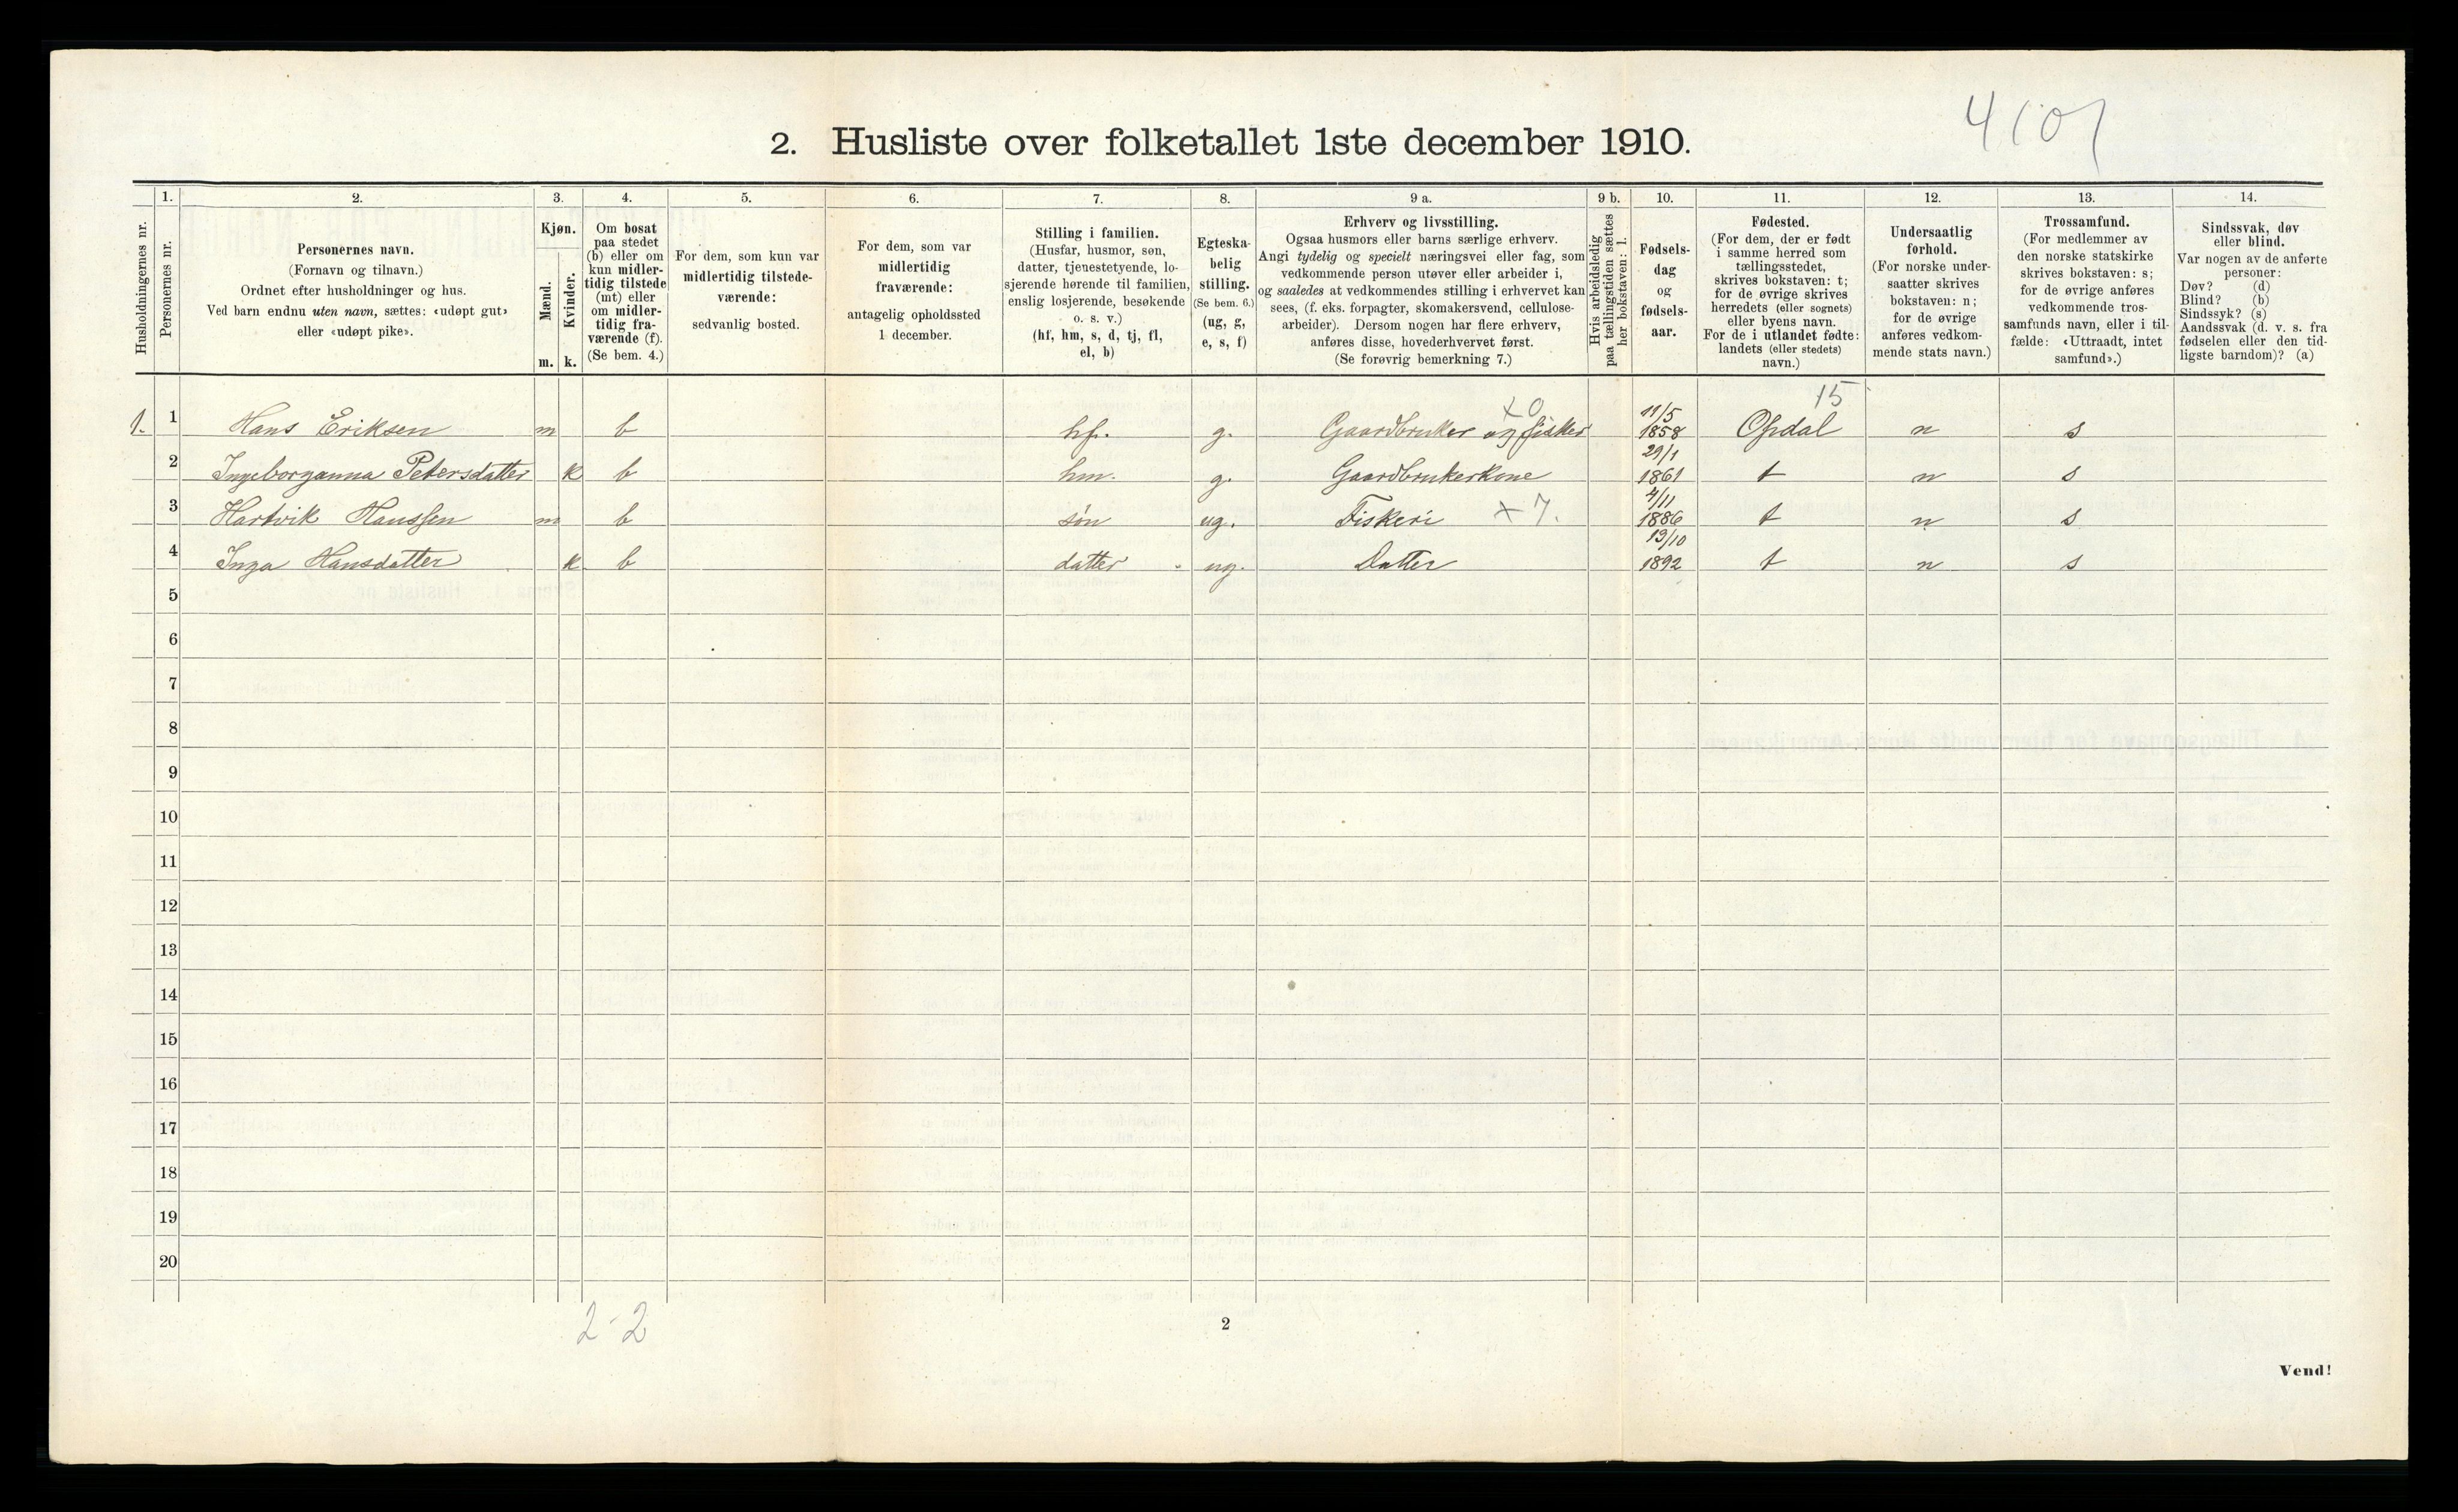 4101
2. Husliste over folketallet 1ste december 1910.
Husholdningernes nr.
1. Personernes nr.
2. Personernes navn. (Fornavn og tilnavn.) Ordnet efter husholdninger og hus. Ved barn endnu uten navn, sættes: «udøpt gut» eller «udøpt pike».
3. Kjøn. Mænd. m. Kvinder. k.
4. Om bosat paa stedet (b) eller om kun midlertidig tilstede (mt) eller om midlertidig fraværende (f). (Se bem. 4.)
5. For dem, som kun var midlertidig tilstedeværende: sedvanlig bosted.
6. For dem, som var midlertidig fraværende: antagelig opholdssted 1 december.
7. Stilling i familien. (Husfar, husmor, søn, datter, tjenestetyende, losjerende hørende til familien, enslig losjerende, besøkende o. s. v.) (hf, hm, s, d, tj, fl, el, b)
8. Egteskabelig stilling. (Se bem. 6.) (ug, g, e, s, f)
9 a. Erhverv og livsstilling. Ogsaa husmors eller barns særlige erhverv. Angi tydelig og specielt næringsvei eller fag, som vedkommende person utøver eller arbeider i, og saaledes at vedkommendes stilling i erhvervet kan sees, (f. eks. forpagter, skomakersvend, cellulosearbeider). Dersom nogen har flere erhverv, anføres disse, hovederhvervet først. (Se forøvrig bemerkning 7.)
9 b. Hvis arbeidsledig paa tællingstiden sættes her bokstaven: l.
10. Fødselsdag og fødselsaar.
11. Fødested. (For dem, der er født i samme herred som tællingsstedet, skrives bokstaven: t; for de øvrige skrives herredets (eller sognets) eller byens navn. For de i utlandet fødte: landets (eller stedets) navn.)
12. Undersaatlig forhold. (For norske undersaatter skrives bokstaven: n; for de øvrige anføres vedkommende stats navn.)
13. Trossamfund. (For medlemmer av den norske statskirke skrives bokstaven: s; for de øvrige anføres vedkommende trossamfunds navn, eller i tilfælde: «Uttraadt, intet samfund».)
14. Sindssvak, døv eller blind. Var nogen av de anførte personer: Døv? (d) Blind? (b) Sindssyk? (s) Aandssvak (d. v. s. fra fødselen eller den tidligste barndom)? (a)
x0 15
1. 1 Hans Eriksen m b hf. g. Gaardbruker og fisker 11/5 1858 Opdal n s
2 Ingeborganna Petersdatter k b hm. g. Gaardbrukerkone 29/1 1861 t n s
3 Hartvik Hanssen m b søn ug. Fiskeri x 7. 4/11 1886 t n s
4 Inga Hansdatter k b datter ug. Datter 19/10 1892 t n s
5
6
7
8
9
10
11
12
13
14
15
16
17
18
19
20
2-2
2
Vend!